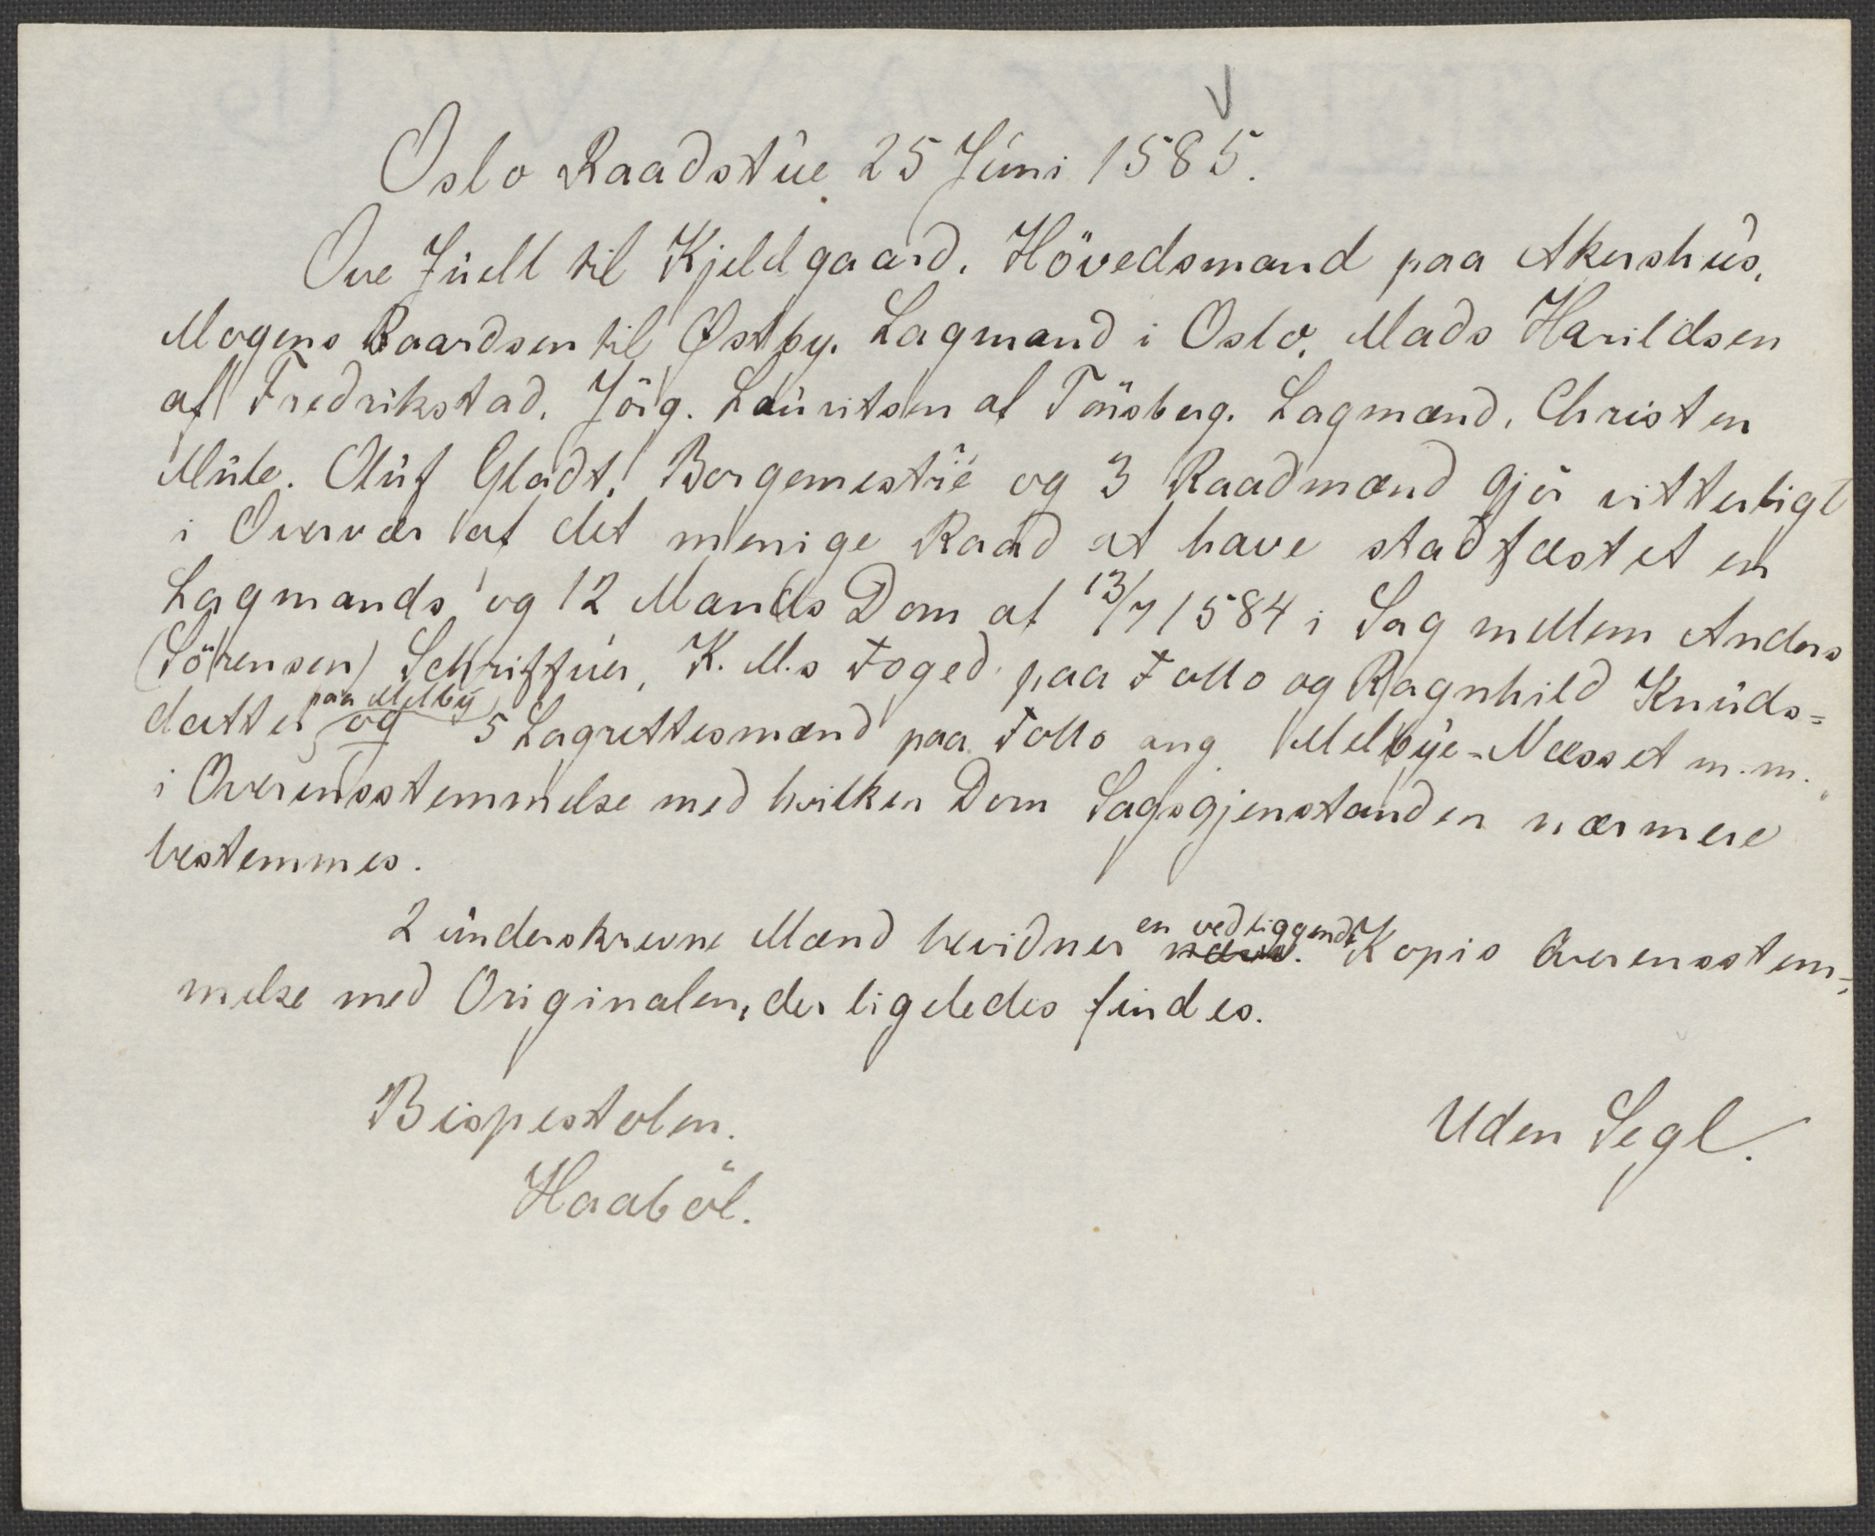 Oslo Raadstue 25 Juni 1585.
Ove Juell til Kjeldgaard. Hövedsmand paa Akershus,
Mogens Baardsen til Østby. Lagmand i Oslo, Mads Harildsen
af Fredrikstad, Jörg. Lauritsen af Tönsberg. Lagmænd, Christen
Mule. Oluf Gladt, Borgemestre og 3 Raadmænd gjör vitterligt
i Overvær af det menige Raad at have stadfæstet en
Lagmands og 12 Mands Dom af 13/7 1584 i Sag mellem Anders
(Sörensen) Schriffuer, K. M.s Foged paa Follo og Ragnhild Knuds=
datter paa Melby og 5 Lagrettesmænd paa Follo ang. Melbye-Næsset m.m.
i Overensstemmelse med hvilken Dom Sagsgjenstanden nærmere
bestemmes.
2 underskrevne Mænd bevidner en vedliggende Kopis Overensstem=
melse med Originalen, der ligeledes findes.
Bispestolen. Uden Segl.
Haaböl.